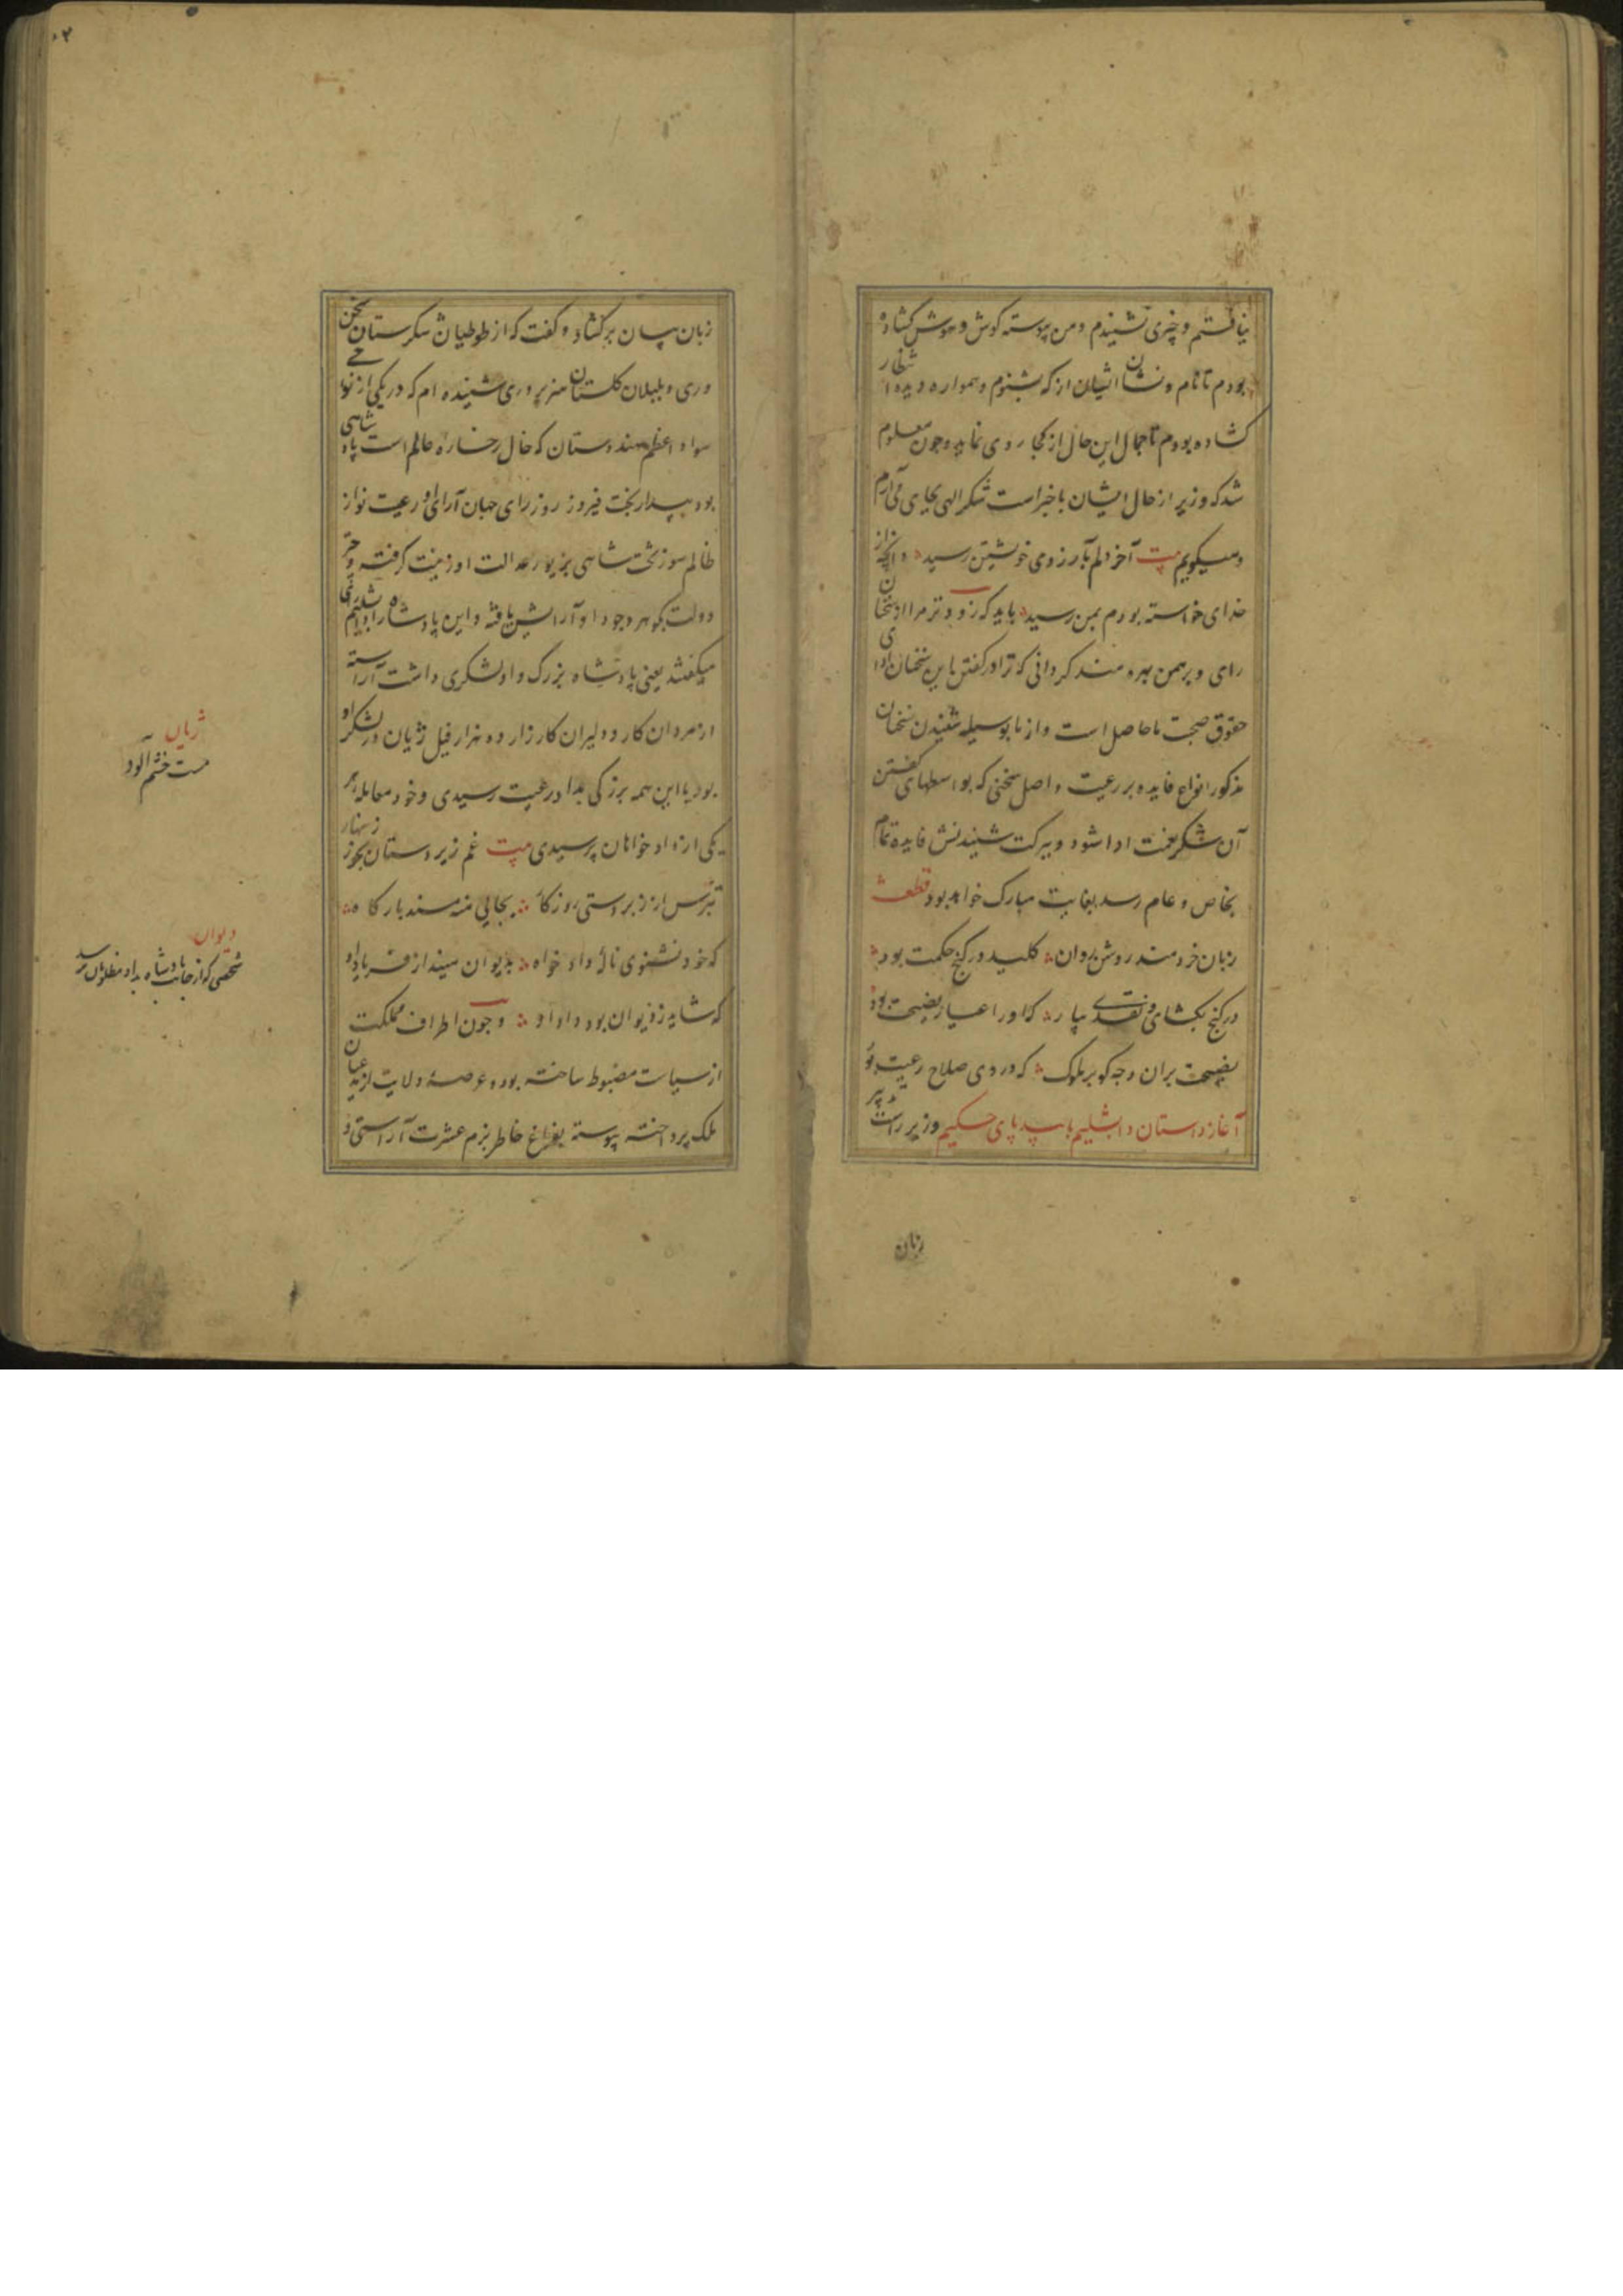 نیافتم و خبری نشنیدم و من پیوسته کوش و هوش کشاده
بودم تا نام و نشان ایشان از که بشنوم و همواره دیده انتظار
کشاده بودم تا جمال این حال از کجا روی نماید و چون معلوم
شد که وزیر از حال ایشان با خبر است شکر الهی بجای می آرم
و میکویم بیت آخر دلم بآرزوی خویشتن رسید و آنچه از
خدای خواسته بودم بمن رسید باید که زودتر مرا از سخنان
رای و برهمن بهره مند کردانی که ترا در کفتن این سخنان ادای
حقوق صحبت ما حاصل است و از ما بوسیله شنیدن سخنان
مذکور انواع فایده بر رعیت واصل سخنی که بواسطهای کفتن
آن شکر نعمت ادا شود و ببرکت شنیدنش فایده تمام
بخاص و عام رسد بغایت مبارک خواهد بود قطعه
زبان خردمند روشن روان کلید در کنج حکمت بود
در کنج بکشای و نقدی بیار که او را عیار نصیحت بود
نصیحت بران وجه کو بر ملوک که در وی صلاح رعیت بود
آغاز داستان دابشلیم با بیدپای حکیم وزیر راست تدبیر
زبان
زبان بیان برکشاد و کفت که از طوطیان شکرستان سخن
وری و بلبلان کلستان هنرپروری شنیده ام که در یکی از نواحی
سواد اعظم هندوستان که خال رخساره عالم است پادشاهی
بود بیدار بخت فیروز روز رای جهان آرای او رعیت نواز
ظالم سوز تخت شاهی بزیور عدالت او زینت کرفته و چتر
دولت بکوهر وجود او آرایش یافته و این پادشاه را دابشلیم
میکفتند یعنی پادشاه بزرک و او لشکری داشت آراسته
از مردان کار و دلیران کارزار ده هزار فیل ژیان در لشکر او
بود با این همه بزرکی بداد رعیت رسیدی و خود معامله هر
یکی از داد خواهان پرسیدی بیت غم زیر دستان بخور زینهار
بترس از زبردستی روزکار بجایی منه مسند بارکاه
که خود نشنوی نالۀ داد خواه بدیوان میند از فریاد او
که شاید ز دیوان بود داد او و چون اطراف مملکت
از سیاست مضبوط ساخته بود و عرصۀ ولایت از مدعیان
ملک پرداخته پیوسته بفراغ خاطر بزم عشرت آراستی و
ژیان
مست خشم آلود
دیوان
شخصی که از جانب پادشاه بداد مظلومان رسد